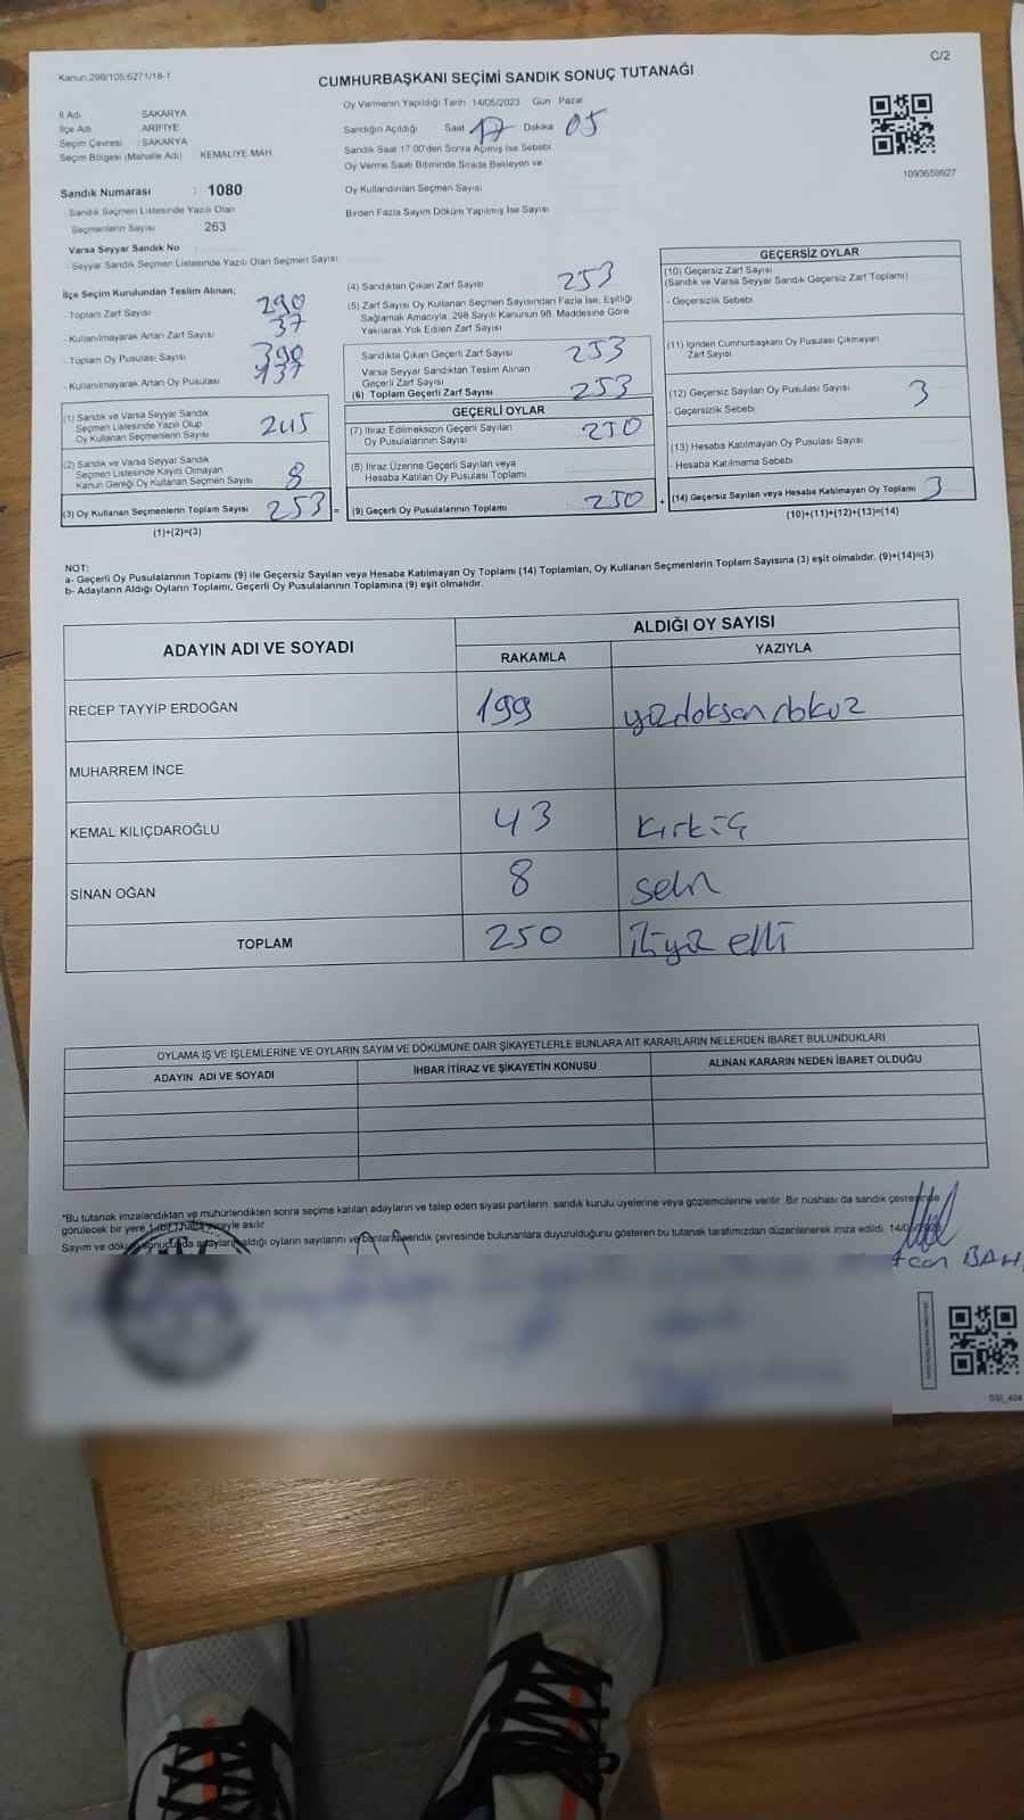 Kanun:298/105;6271/18-1
C/2
CUMHURBAŞKANI SEÇİMİ SANDIK SONUÇ TUTANAĞI
İl Adı SAKARYA
İlçe Adı ARİFİYE
Seçim Çevresi : SAKARYA
Seçim Bölgesi (Mahalle Adı) KEMALİYE MAH.
Sandık Numarası : 1080
Sandık Seçmen Listesinde Yazılı Olan
Seçmenlerin Sayısı 263
Varsa Seyyar Sandık No
Seyyar Sandık Seçmen Listesinde Yazılı Olan Seçmen Sayısı
Oy Vermenin Yapıldığı Tarih 14/05/2023 Gün Pazar
Sandığın Açıldığı Saat 17 Dakika 05
Sandık Saat 17.00'den Sonra Açılmış İse Sebebi
Oy Verme Saati Bitiminde Sırada Bekleyen ve
Oy Kullandırılan Seçmen Sayısı
Birden Fazla Sayım Döküm Yapılmış İse Sayısı
1093659827
İlçe Seçim Kurulundan Teslim Alınan;
- Toplam Zarf Sayısı 290
- Kullanılmayarak Artan Zarf Sayısı 37
- Toplam Oy Pusulası Sayısı 390
- Kullanılmayarak Artan Oy Pusulası 137
(1) Sandık ve Varsa Seyyar Sandık
Seçmen Listesinde Yazılı Olup
Oy Kullanan Seçmenlerin Sayısı 245
(2) Sandık ve Varsa Seyyar Sandık
Seçmen Listesinde Kayıtlı Olmayan
Kanun Gereği Oy Kullanan Seçmen Sayısı 8
(3) Oy Kullanan Seçmenlerin Toplam Sayısı 253 =
(1)+(2)=(3)
(4) Sandıktan Çıkan Zarf Sayısı 253
(5) Zarf Sayısı Oy Kullanan Seçmen Sayısından Fazla İse, Eşitliği
Sağlamak Amacıyla, 298 Sayılı Kanunun 98. Maddesine Göre
Yakılarak Yok Edilen Zarf Sayısı
Sandıkta Çıkan Geçerli Zarf Sayısı 253
Varsa Seyyar Sandıktan Teslim Alınan
Geçerli Zarf Sayısı
(6) Toplam Geçerli Zarf Sayısı 253
GEÇERLİ OYLAR
(7) İtiraz Edilmeksizin Geçerli Sayılan
Oy Pusulalarının Sayısı 250
(8) İtiraz Üzerine Geçerli Sayılan veya
Hesaba Katılan Oy Pusulası Toplamı
(9) Geçerli Oy Pusulalarının Toplamı 250 +
GEÇERSİZ OYLAR
(10) Geçersiz Zarf Sayısı
(Sandık ve Varsa Seyyar Sandık Geçersiz Zarf Toplamı)
- Geçersizlik Sebebi
(11) İçinden Cumhurbaşkanı Oy Pusulası Çıkmayan
Zarf Sayısı
(12) Geçersiz Sayılan Oy Pusulası Sayısı 3
- Geçersizlik Sebebi
(13) Hesaba Katılmayan Oy Pusulası Sayısı
- Hesaba Katılmama Sebebi
(14) Geçersiz Sayılan veya Hesaba Katılmayan Oy Toplamı 3
(10)+(11)+(12)+(13)=(14)
NOT:
a- Geçerli Oy Pusulalarının Toplamı (9) ile Geçersiz Sayılan veya Hesaba Katılmayan Oy Toplamı (14) Toplamları, Oy Kullanan Seçmenlerin Toplam Sayısına (3) eşit olmalıdır. (9)+(14)=(3)
b- Adayların Aldığı Oyların Toplamı, Geçerli Oy Pusulalarının Toplamına (9) eşit olmalıdır.
ADAYIN ADI VE SOYADI ALDIĞI OY SAYISI
RAKAMLA YAZIYLA
RECEP TAYYİP ERDOĞAN 199 yüzdoksan dokuz
MUHARREM İNCE
KEMAL KILIÇDAROĞLU 43 kırküç
SİNAN OĞAN 8 sekiz
TOPLAM 250 ikiyüz elli
OYLAMA İŞ VE İŞLEMLERİNE VE OYLARIN SAYIM VE DÖKÜMÜNE DAİR ŞİKAYETLERLE BUNLARA AİT KARARLARIN NELERDEN İBARET BULUNDUKLARI
ADAYIN ADI VE SOYADI İHBAR İTİRAZ VE ŞİKAYETİN KONUSU ALINAN KARARIN NEDEN İBARET OLDUĞU
*Bu tutanak imzalandıktan ve mühürlendikten sonra seçime katılan adayların ve talep eden siyasi partilerin, sandık kurulu üyelerine veya gözlemcilerine verilir. Bir nüshası da sandık çevresinde
görülecek bir yere asılır.
Sayım ve aldığı oyların sayılarını sandık çevresinde bulunanlara duyurulduğunu gösteren bu tutanak tarafımızdan düzenlenerek imza edildi.
BAH